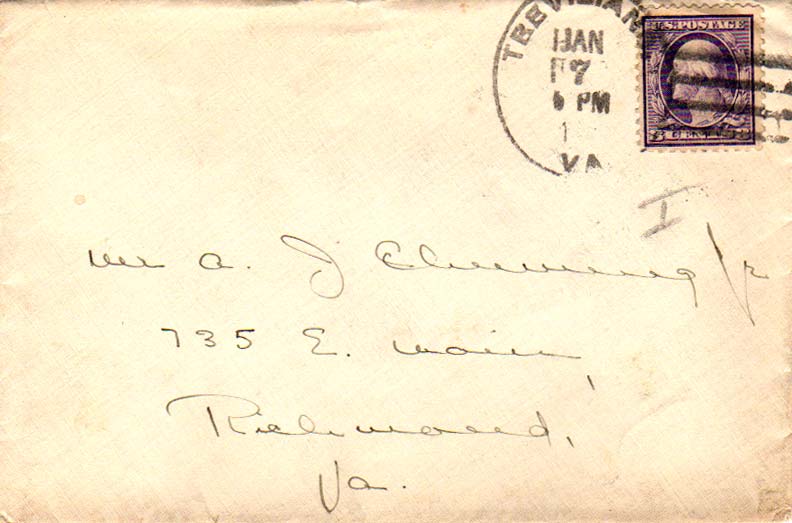 TREVILIAN
JAN
7
PM
VA
U.S. POSTAGE
3 CENTS 3
I
Mr A. J Chewning Jr
735 E. Main,
Richmond,
Va.